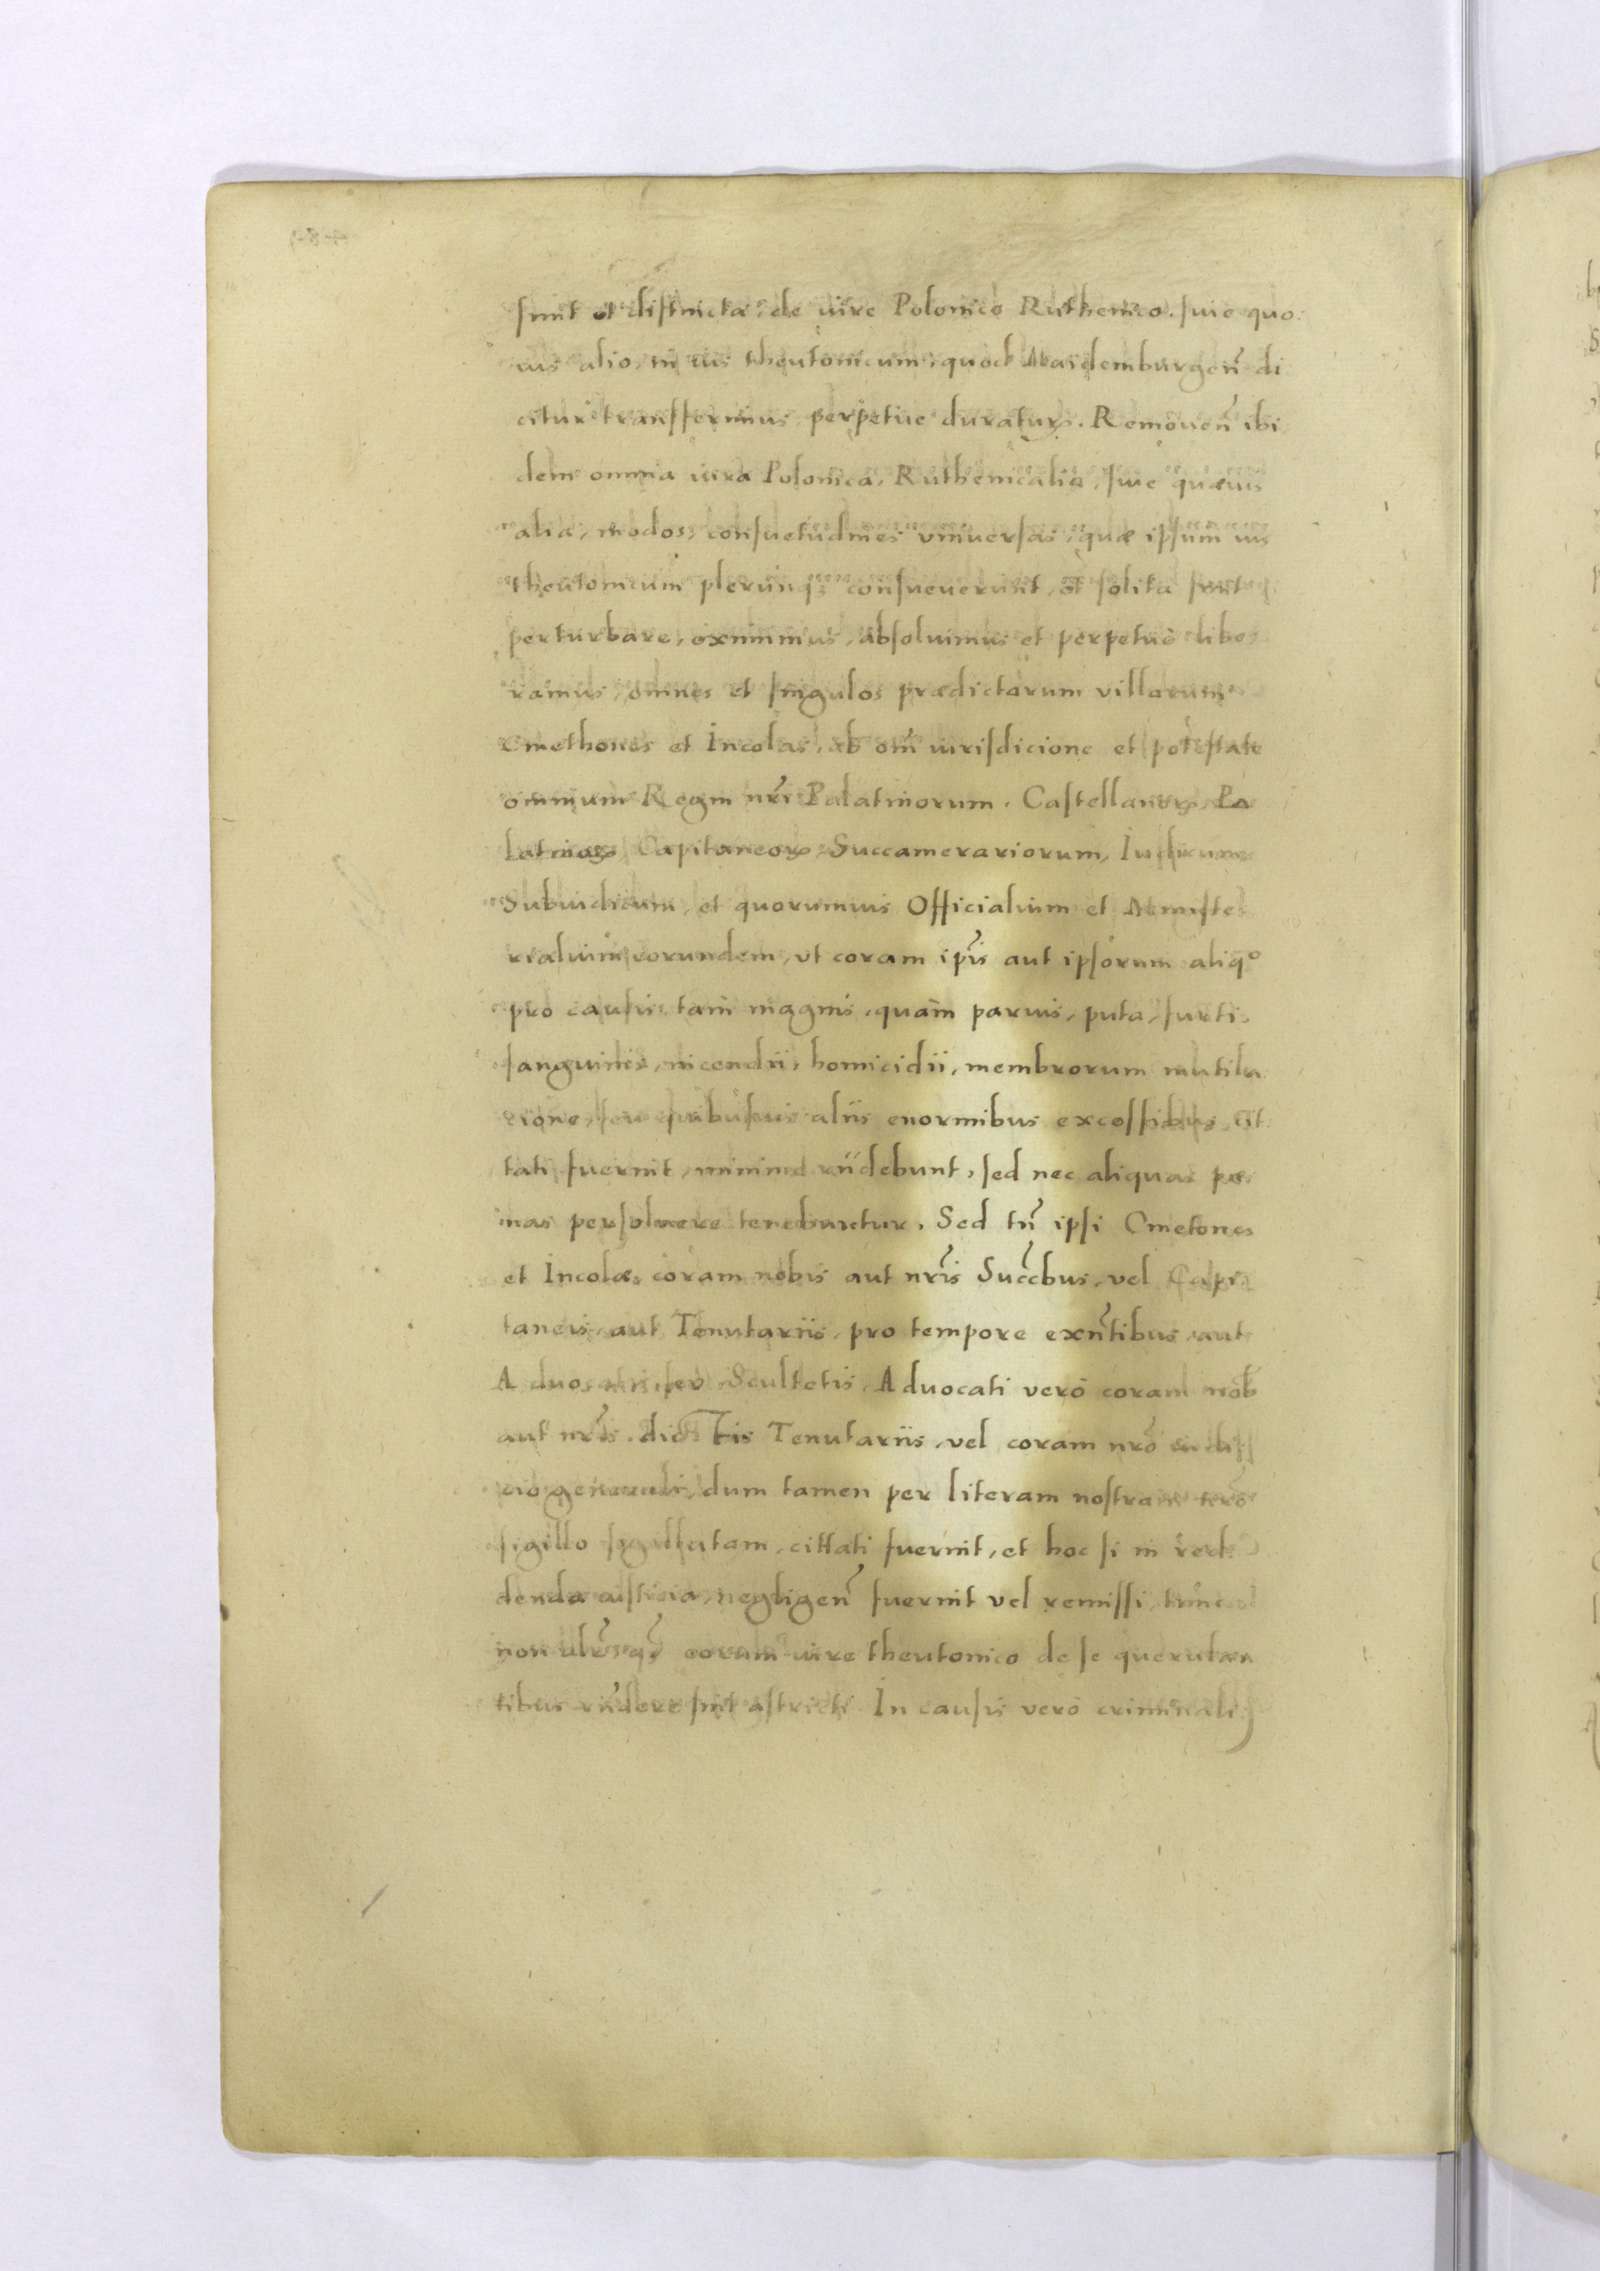 sunt et distincta, de iure Polonico Ruthenico, siue quo
uis alio, in ius theutonicum, quod Maidemburgen̄ di
citur transferimus perpetue duraturꝝ. Remouen̄ ibi
dem omnia iura Polonica, Ruthenicalia, siue quæuis
alia, modos, consuetudines vniuersas, quæ ipsum ius
theutonicum plerunqꝫ consueuerunt, et solita sunt
perturbare, eximimus, absoluimus et perpetuo libe
ramus, omnes et singulos prædictarum villarum
Cmethones et Incolas, ab om̄i iurisdicione et potestate
omnium Regni nr̄i Palatinorum, Castellanorꝝ, Pa
latinorꝝ, Capitaneorꝝ, Succamerariorum, Iudicum
Subiudicum, et quorumuis Officialium et Ministe
rialium eorundem, vt coram ip̄is aut ipsorum aliqº
pro causis tam magnis, quàm paruis, puta, furti,
sanguinis, incendii, homicidii, membrorum mutila
cione, seu quibusuis aliis enormibus excessibus, cit
tati fuerint, minime rn̄debunt, sed nec aliquas pæ
nas persoluere tenebuntur. Sed tn̄ ipsi Cmetones
et Incolæ, coram nobis aut nr̄is Succ̄bus, vel Capi
taneis, aut Tenutariis, pro tempore exn̄tibus, aut
Aduocatis, seu Scultetis, Aduocati verò coram nob̄
aut nr̄is dictis Tenutariis, vel coram nr̄o iudi
cio generali, dum tamen per literam nostram nr̄o
sigillo sigillatam, cittati fuerint, et hoc si in red
denda iusticia, negligen̄ fuerint vel remissi, tunc
non alr̄ qꝫ eorum iure theutonico de se querulan
tibus rn̄dere sint astricti. In causis verò criminali